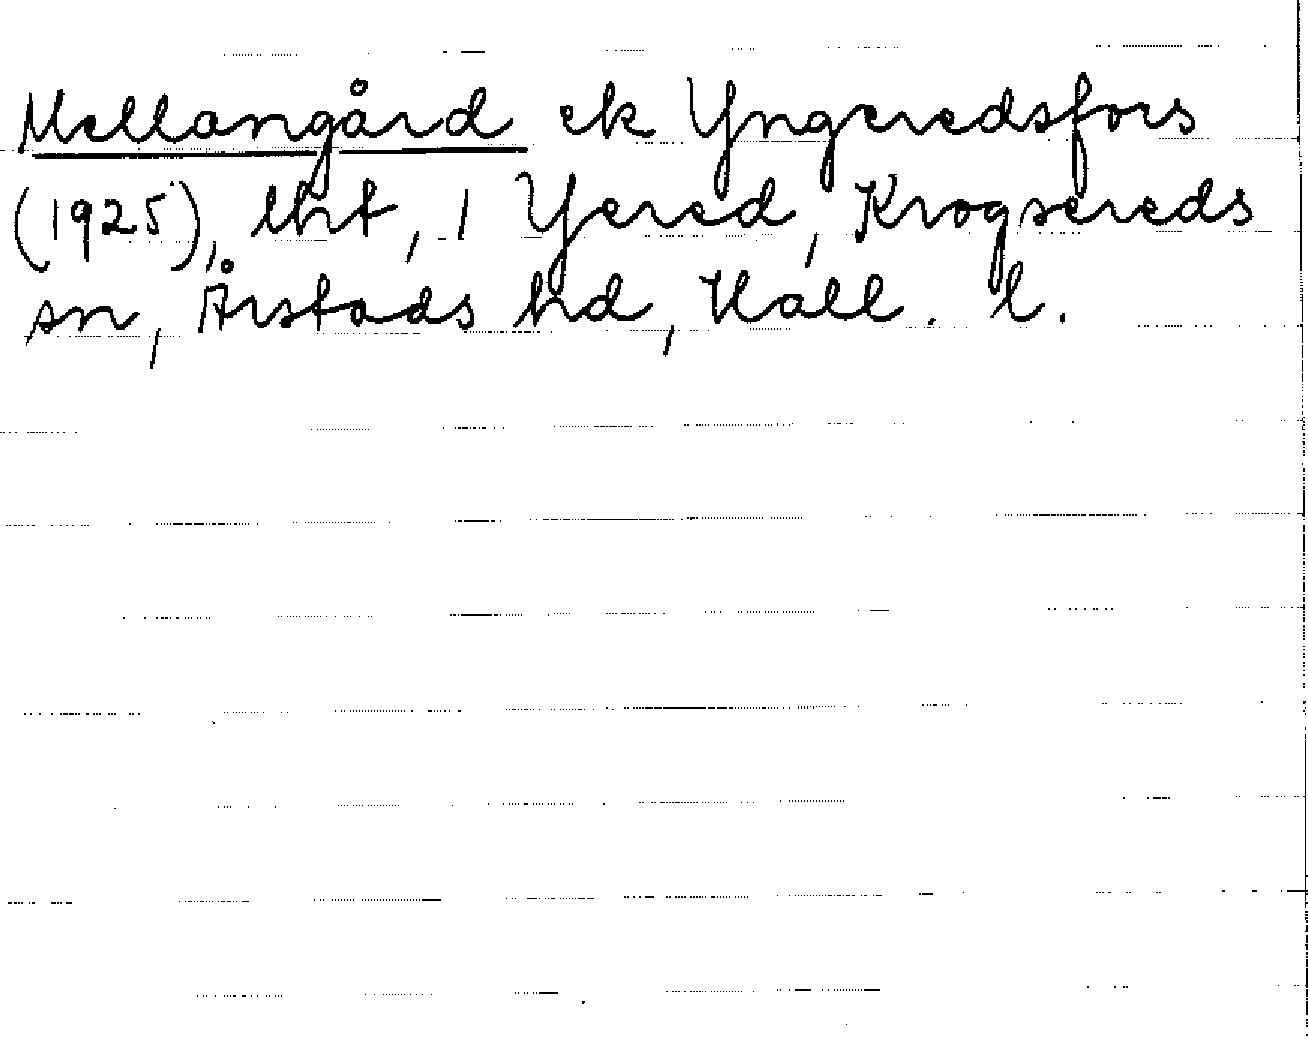 Mellangård ek Yngeredsfors
(1925), lht, 1 Yered, Krogsereds
sn, Årstads hd, Hall. l.